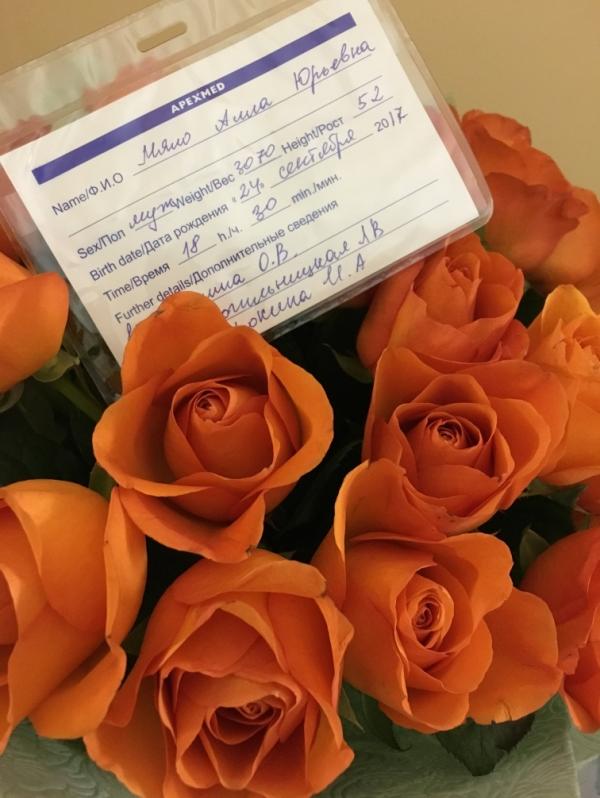 APEXMED
Name/Ф.И.О Мяло Алла Юрьевна
Sex/Пол муж Weight/Вес 3070 Height/Рост 52
Birth date/Дата рождения "24" сентября 2017
Time/Время 18 h/ч. 30 min./мин.
Further details/Дополнительные сведения
О.В.
Л.В
И.А